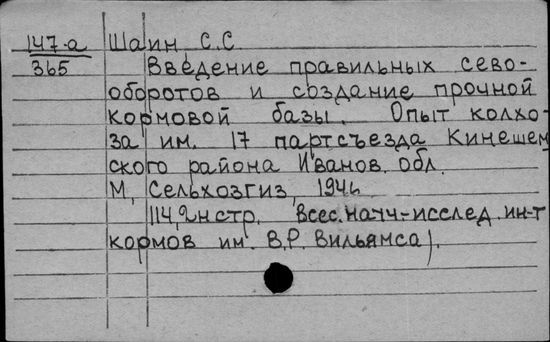 147-а Шаин, С.С.
365 Введение правильных сево-
оборотов и создание прочной
кормовой базы. Опыт колхо-
за им. 17 партсъезда Кинешем
ского района Иванов. обл.
М, Сельхозгиз,
114,2нстр. Всес.научн-исслед.ин-т
кормов им. В.Р. Вильямса).